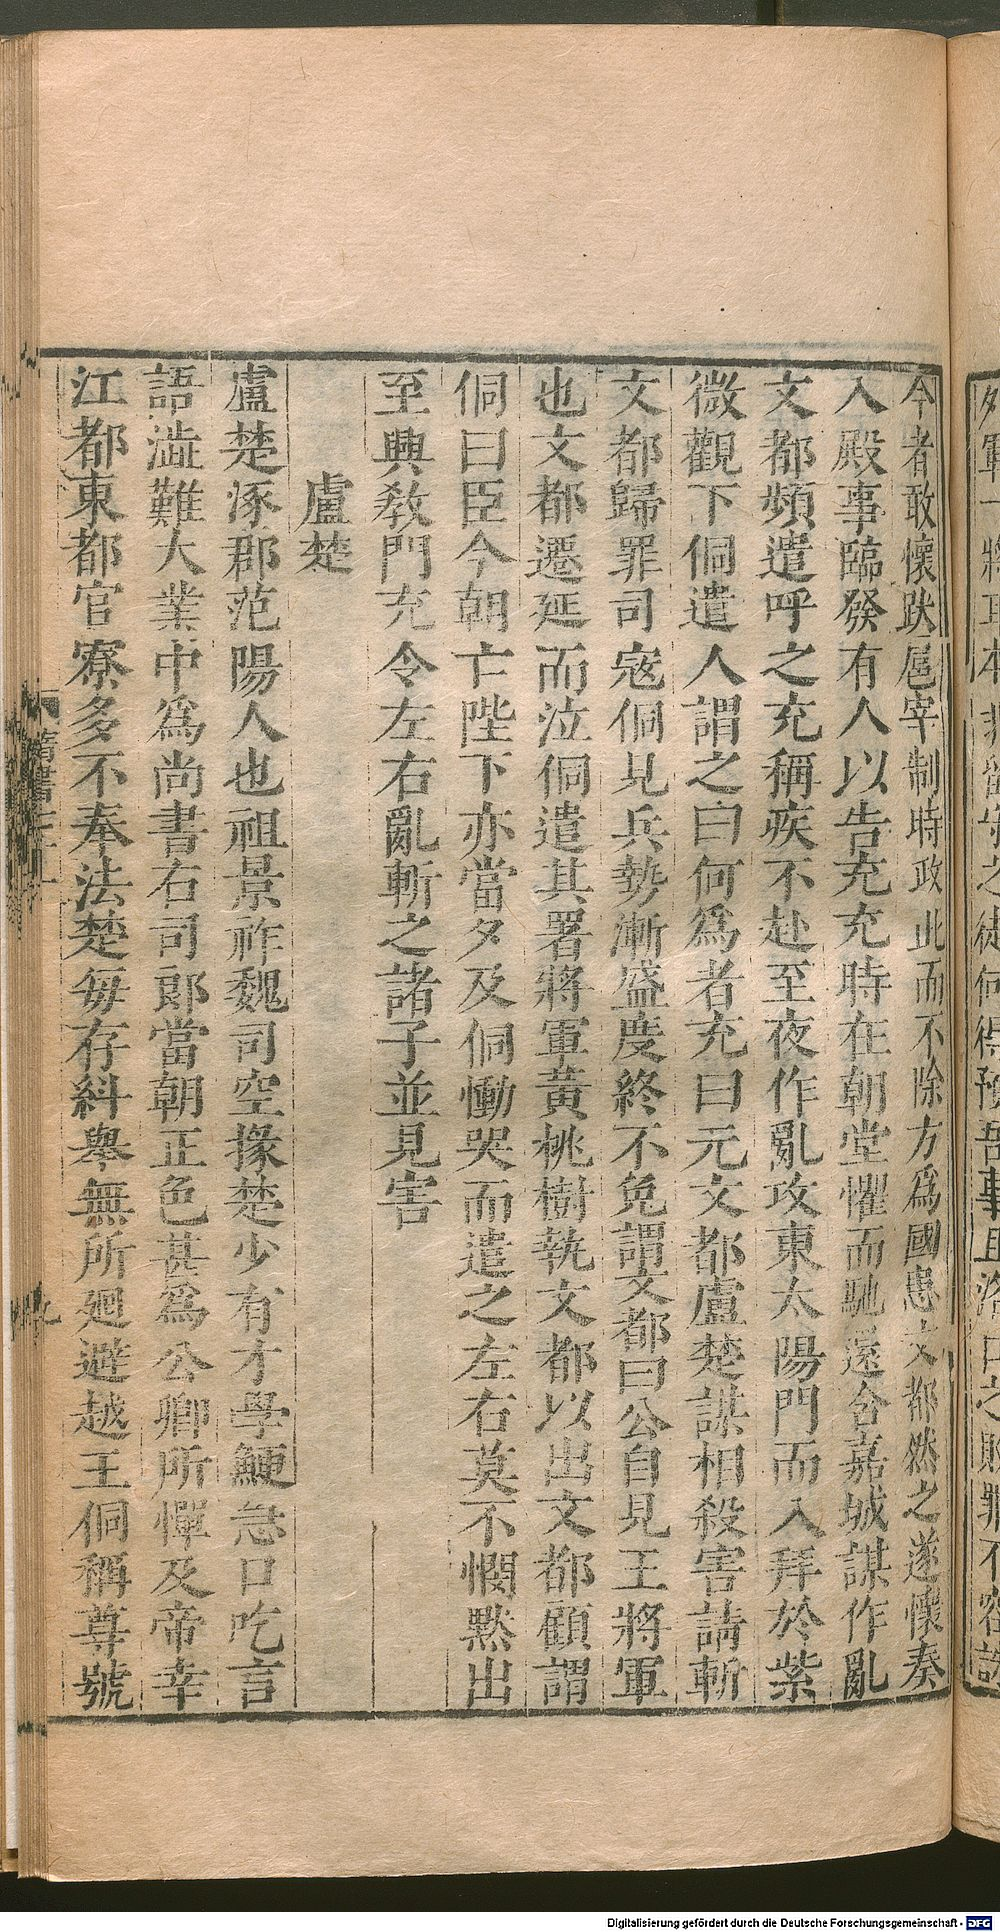 今者敢懷跋扈宰制時政此而不除方爲國患文都然之遂懷奏
入殿事臨發有人以告充充時在朝堂懼而馳還含嘉城謀作亂
文都頻遣呼之充稱疾不赴至夜作亂攻東太陽門而入拜於紫
微觀下侗遣人謂之曰何爲者充曰元文都盧楚謀相殺害請斬
文都歸罪司寇侗見兵勢漸盛度終不免謂文都曰公自見王將軍
也文都遷延而泣侗遣其署將軍黃桃樹執文都以出文都顧謂
侗曰臣今朝亡陛下亦當夕及侗慟哭而遣之左右莫不憫黙出
至興教門充令左右亂斬之諸子並見害
盧楚
盧楚涿郡范陽人也祖景祚魏司空掾楚少有才學鯁急口吃言
語澁難大業中爲尚書右司郎當朝正色甚爲公卿所憚及帝幸
江都東都官寮多不奉法楚每存糾舉無所廻避越王侗稱尊號
隋書
Digitalisierung gefördert durch die Deutsche Forschungsgemeinschaft - DFG